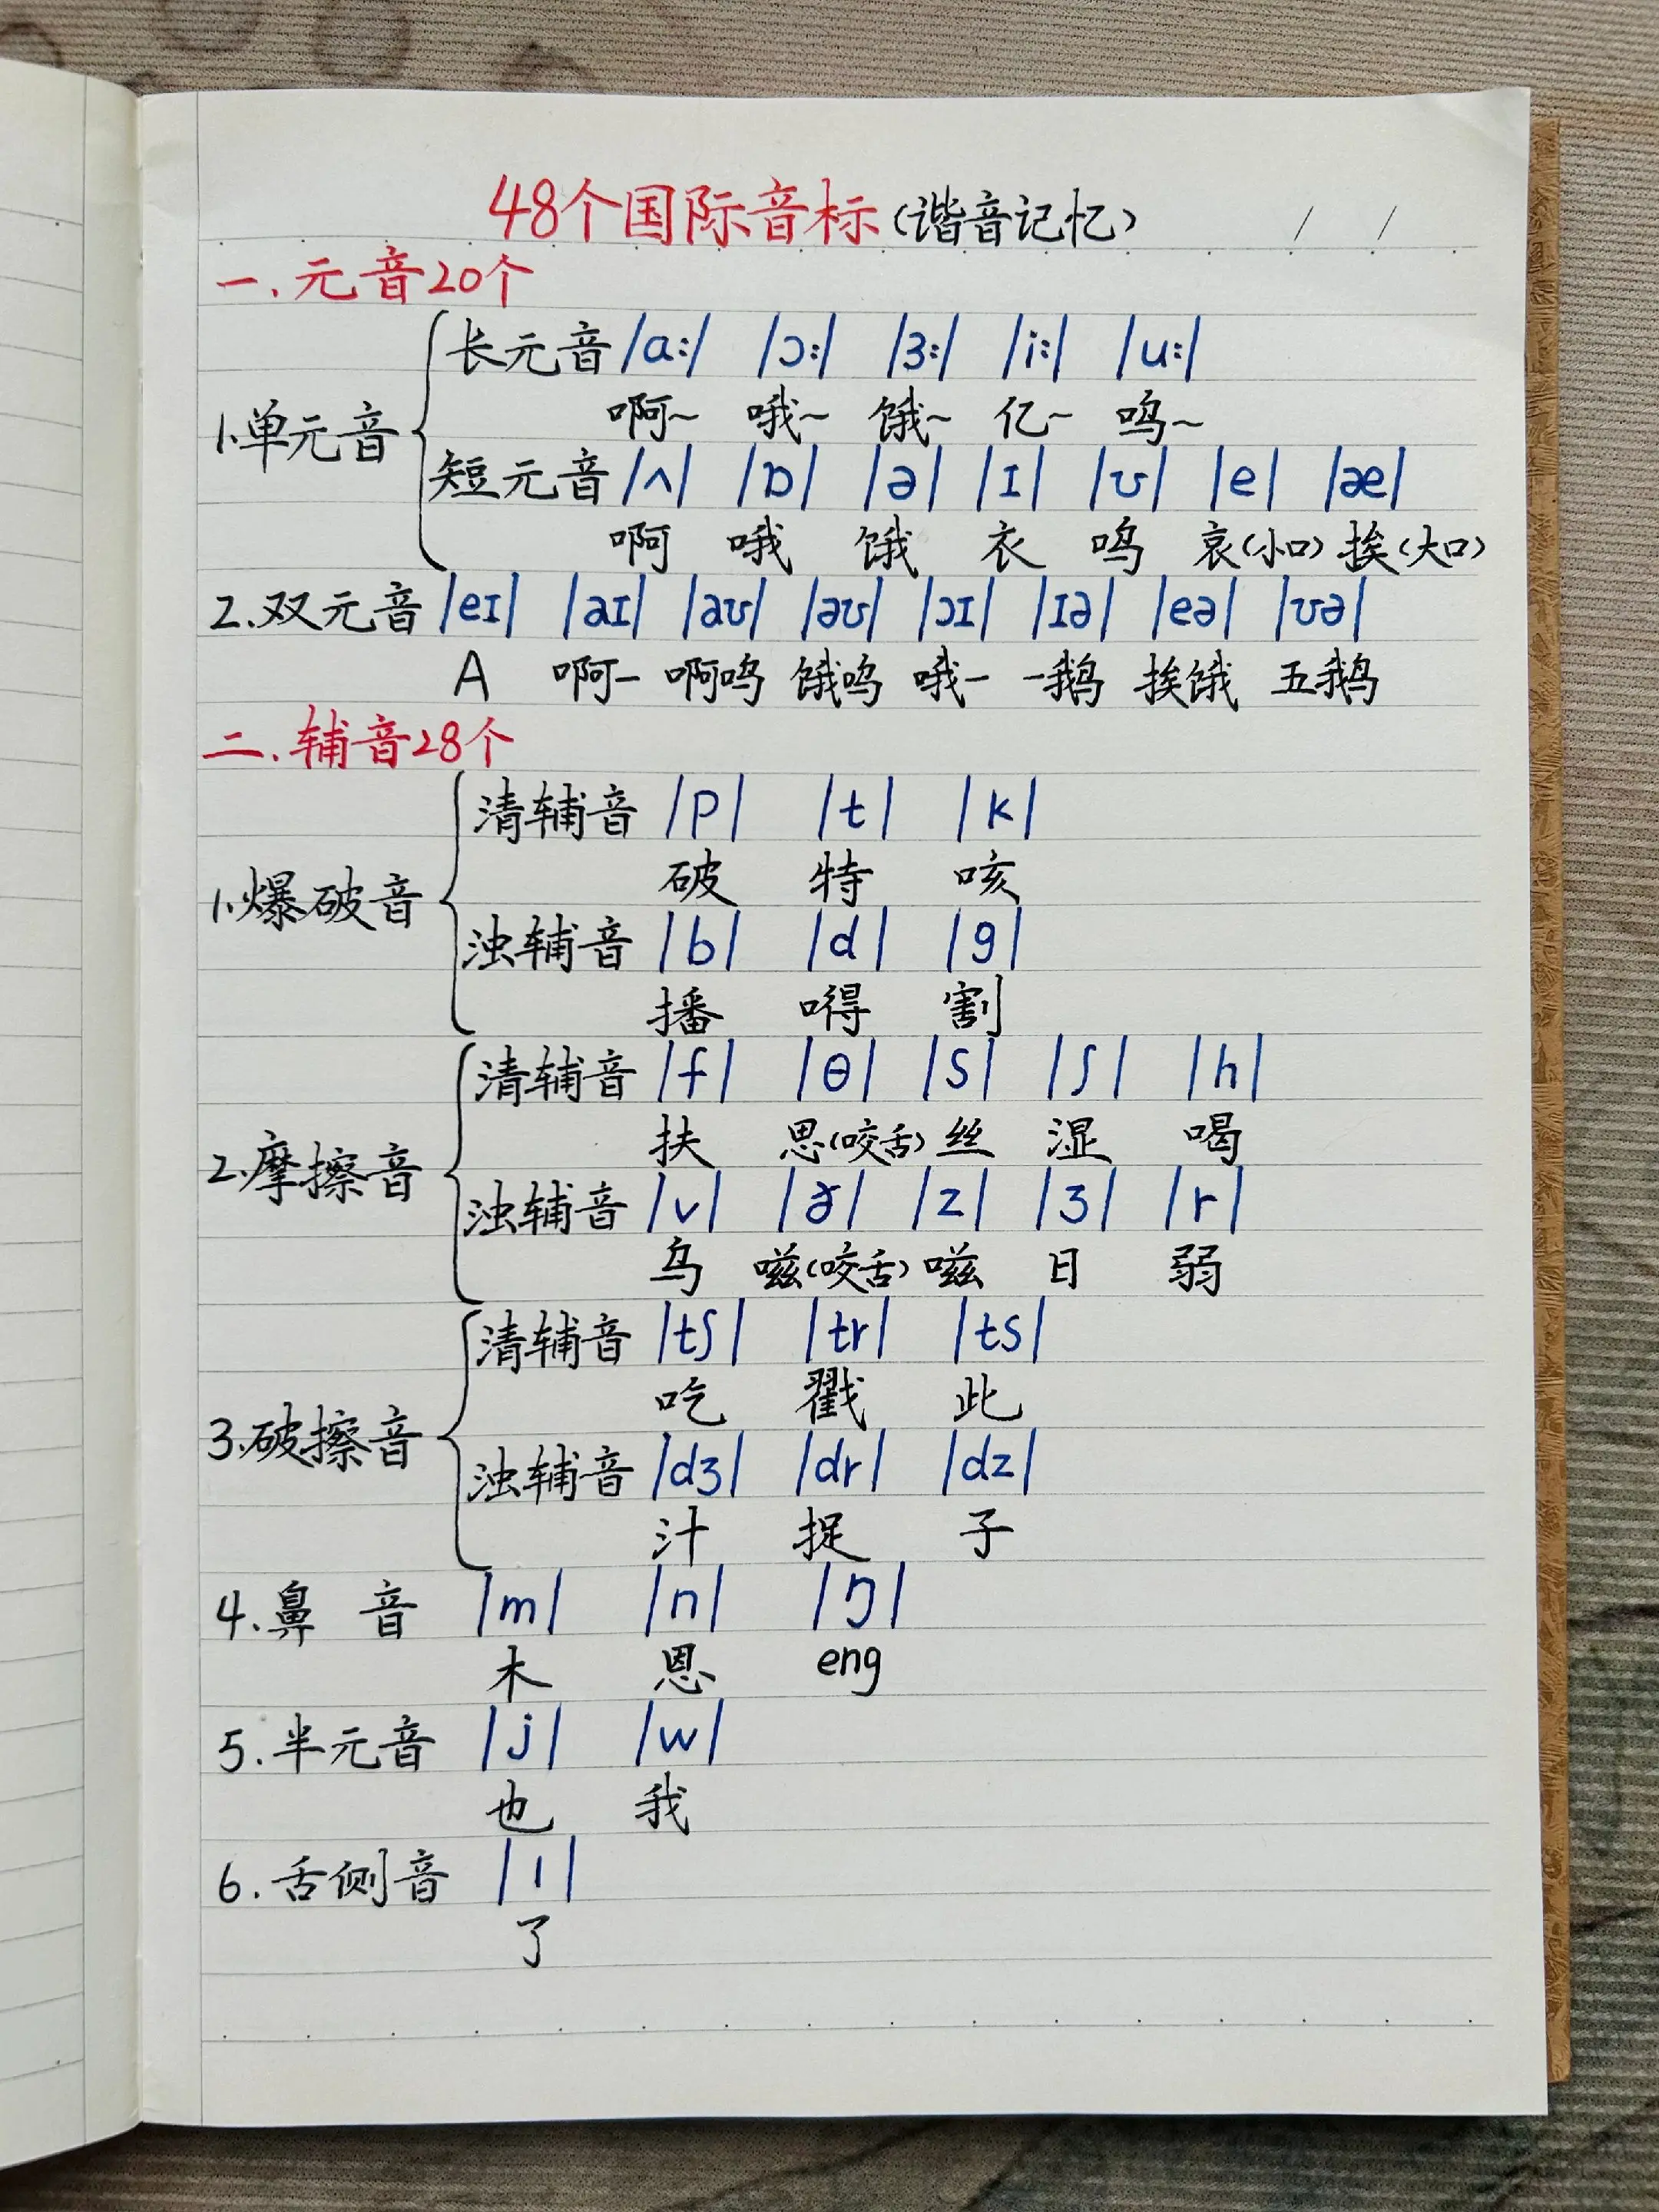 48个国际音标(谐音记忆) / /
一.元音20个
长元音 /ɑ:/ /ɔ:/ /ɜ:/ /i:/ /u:/
啊~ 哦~ 饿~ 亿~ 呜~
1.单元音
短元音 /ʌ/ /ɒ/ /ə/ /ɪ/ /ʊ/ /e/ /æ/
啊 哦 饿 衣 呜 哀(小口) 挨(大口)
2.双元音 /eɪ/ /aɪ/ /aʊ/ /əʊ/ /ɔɪ/ /ɪə/ /eə/ /ʊə/
A 啊一 啊呜 饿呜 哦一 一鹅 挨饿 五鹅
二.辅音28个
清辅音 /p/ /t/ /k/
破 特 咳
1.爆破音
浊辅音 /b/ /d/ /g/
播 嘚 割
清辅音 /f/ /θ/ /s/ /ʃ/ /h/
扶 思(咬舌) 丝 湿 喝
2.摩擦音
浊辅音 /v/ /ð/ /z/ /ʒ/ /r/
乌 嗞(咬舌) 嗞 日 弱
清辅音 /tʃ/ /tr/ /ts/
吃 戳 此
3.破擦音
浊辅音 /dʒ/ /dr/ /dz/
汁 捉 子
4.鼻音 /m/ /n/ /ŋ/
木 恩 eng
5.半元音 /j/ /w/
也 我
6.舌侧音 /l/
了